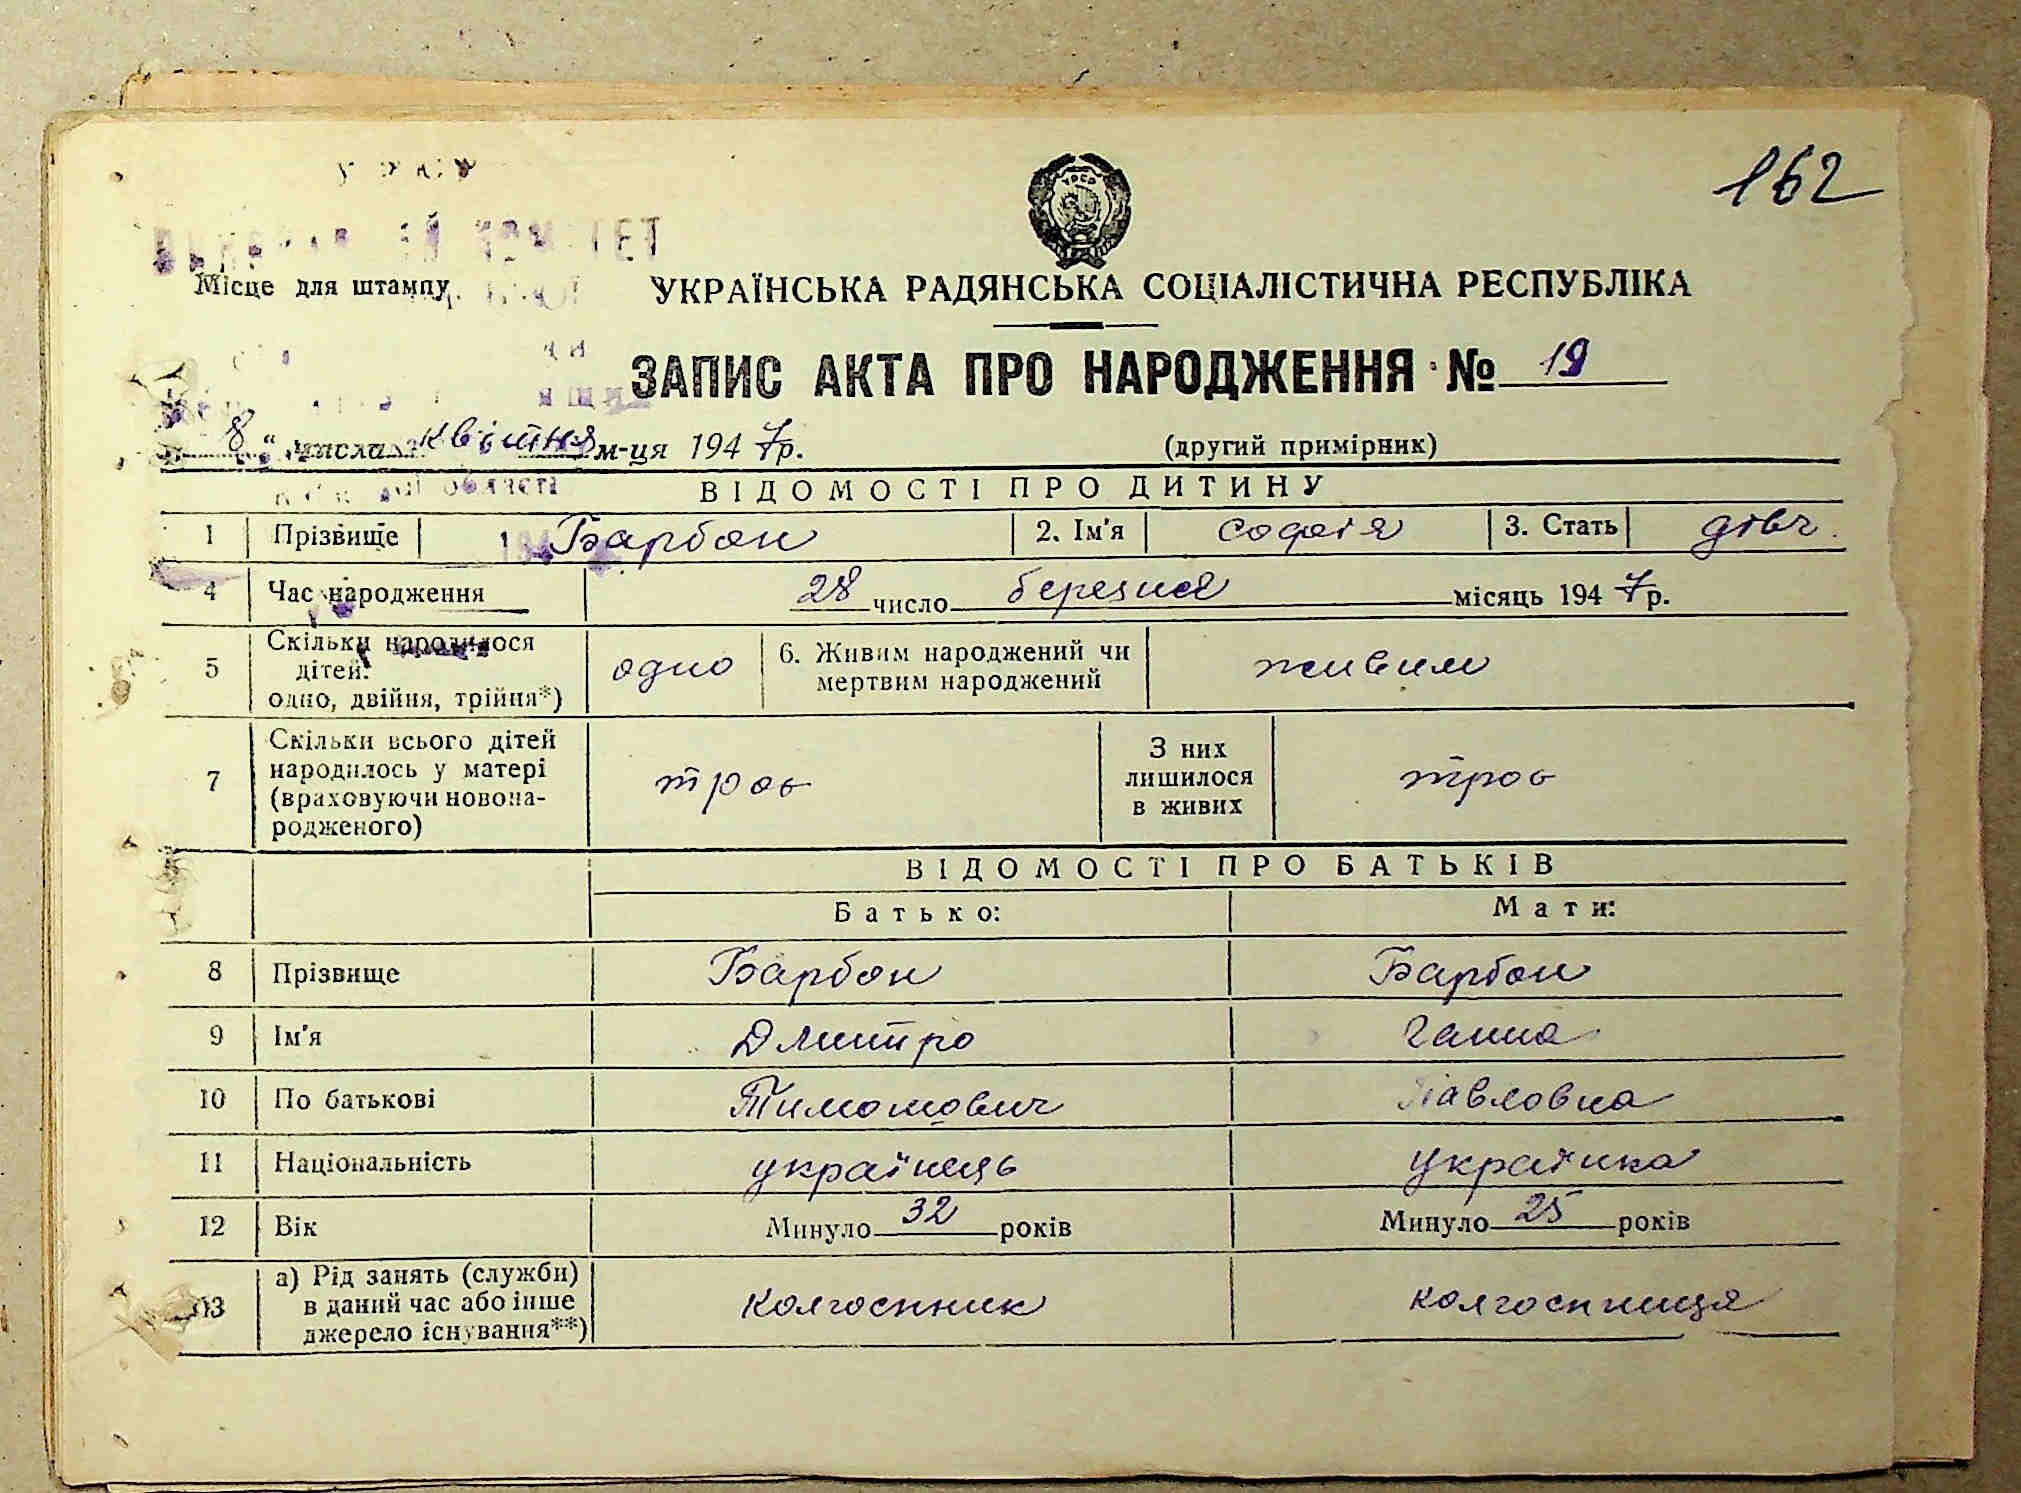 162
УРСР
Місце для штампу
УКРАЇНСЬКА РАДЯНСЬКА СОЦІАЛІСТИЧНА РЕСПУБЛІКА
ЗАПИС АКТА ПРО НАРОДЖЕННЯ № 19
8 " числа квітня м-ця 1947р.
(другий примірник)
області
ВІДОМОСТІ ПРО ДИТИНУ
1 Прізвище Барбон 2. Ім'я Софія 3. Стать дівч.
4 Час народження 28 число березня місяць 1947р.
5 Скільки народилося дітей: одно, двійня, трійня*) одно 6. Живим народжений чи мертвим народжений живим
7 Скільки всього дітей народилось у матері (враховуючи новонародженого) троє З них лишилося в живих троє
ВІДОМОСТІ ПРО БАТЬКІВ
Батько: Мати:
8 Прізвище Барбон Барбон
9 Ім'я Дмитро Ганна
10 По батькові Тимошович Павловна
11 Національність українець українка
12 Вік Минуло 32 років Минуло 25 років
13 а) Рід занять (служби) в даний час або інше джерело існування**) колгоспник колгоспниця